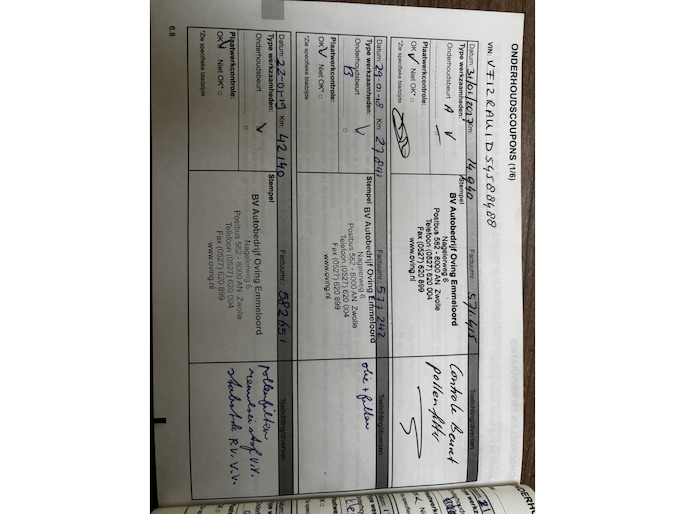 ONDERHOUDSCOUPONS (1/6)
VIN: VF12RAU1D54588488
Datum: 31/01/2017 Km: 14940
Type werkzaamheden:
Onderhoudsbeurt A V
Plaatwerkcontrole:
OK V Niet OK* □
*Zie specifieke bladzijde
Stempel
BV Autobedrijf Oving Emmeloord
Nagelerweg 6
Postbus 582 - 8000 AN Zwolle
Telefoon (0527) 620 004
Fax (0527) 620 899
www.oving.nl
Factuurnr.: 571415
Toelichting/diversen
Controle Beurt
pollenfilter
Datum: 29-01-18 Km: 27841
Type werkzaamheden: V
Onderhoudsbeurt B
Plaatwerkcontrole:
OK V Niet OK* □
*Zie specifieke bladzijde
Stempel
BV Autobedrijf Oving Emmeloord
Nagelerweg 6
Postbus 582 - 8000 AN Zwolle
Telefoon (0527) 620 004
Fax (0527) 620 899
www.oving.nl
Factuurnr.: 577242
Toelichting/diversen
olie + filter
Datum: 22-01-19 Km: 42140
Type werkzaamheden: V
Onderhoudsbeurt
Plaatwerkcontrole:
OK V Niet OK* □
*Zie specifieke bladzijde
Stempel
BV Autobedrijf Oving Emmeloord
Nagelerweg 6
Postbus 582 - 8000 AN Zwolle
Telefoon (0527) 620 004
Fax (0527) 620 899
www.oving.nl
Factuurnr.: 582651
Toelichting/diversen
pollenfilter
remvloeistof V.V.
R.V. V.V.
6.8